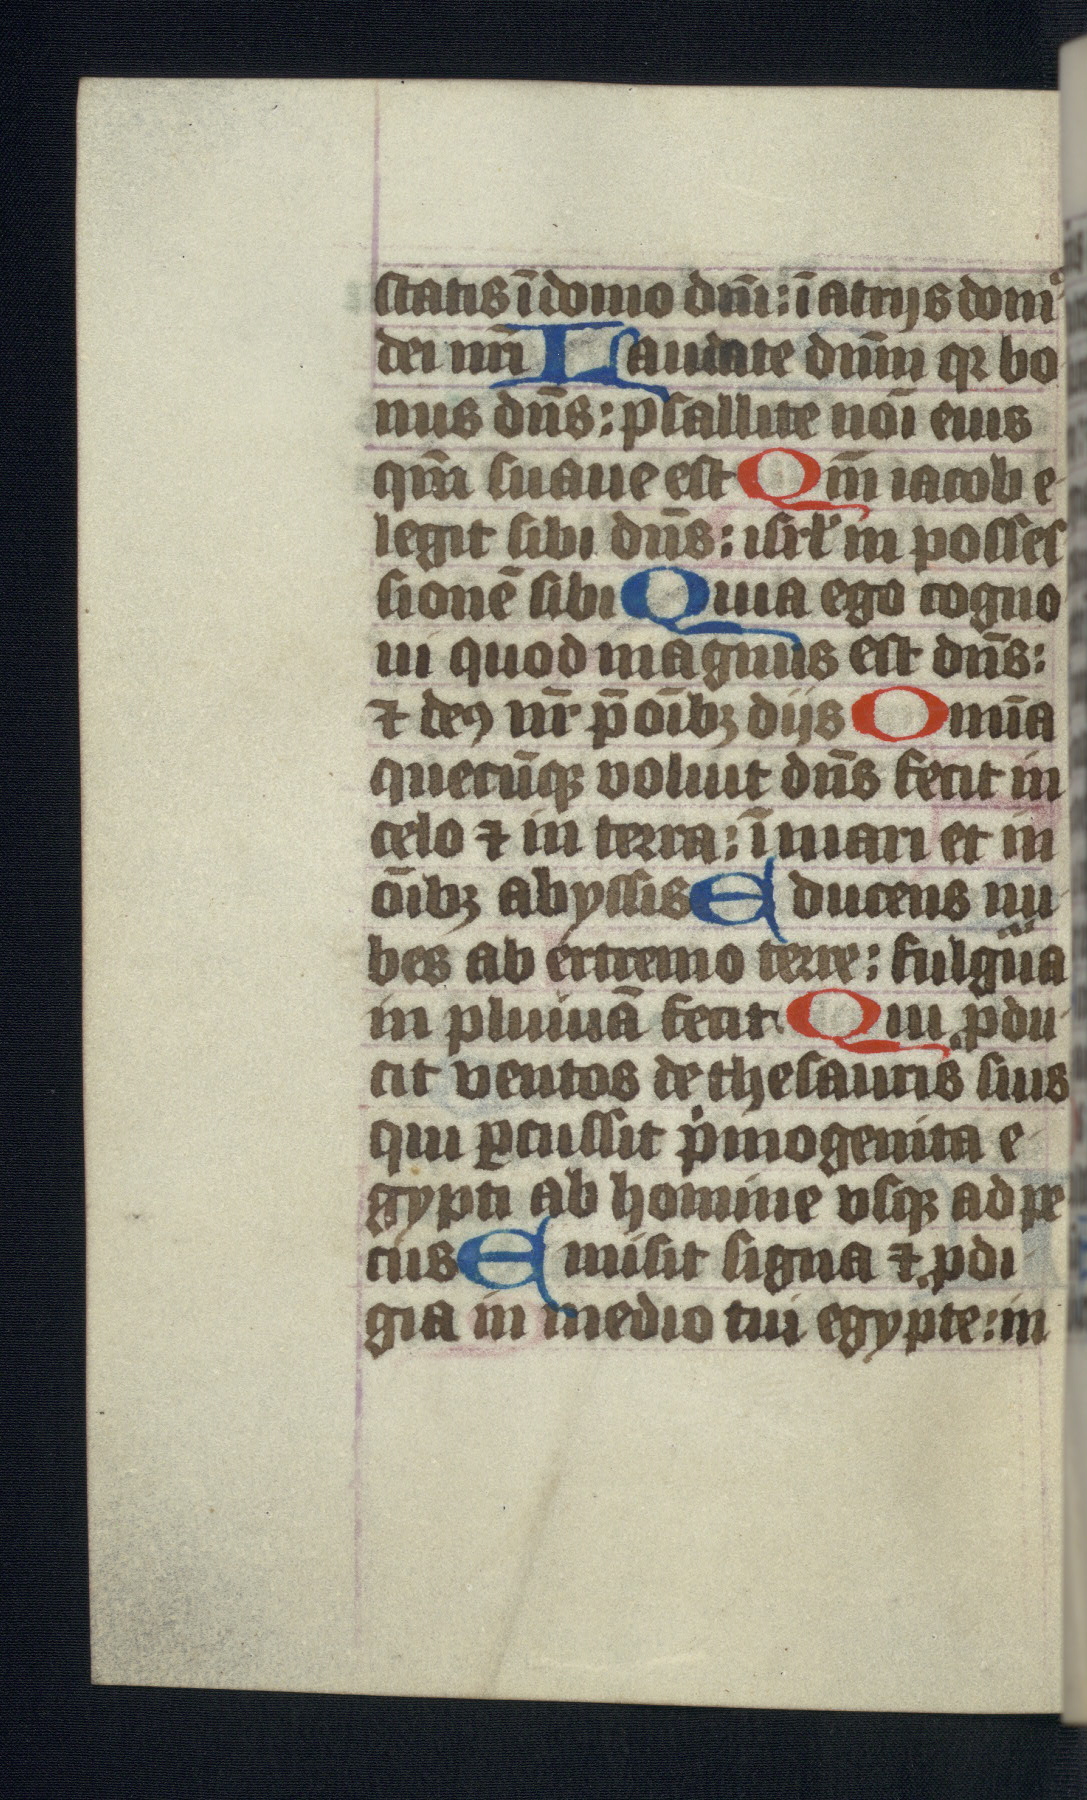 statis ī domo dn̄i: ī atrijs dom᷒
dei nr̄i Laudate dn̄m qꝛ bo
nus dn̄s: psallite nōi eius
qm̄ suaue est Qm̄ iacob e-
legit sibi dn̄s: isrl̄ in posses
sionē sibi Quia ego cogno
ui quod magnus est dn̄s:
⁊ deꝯ nr̄ p̄ oībꝫ dijs Omīa
quecūqꝫ voluit dn̄s fecit in
celo ⁊ in terra: ī mari et in
oībꝫ abyssis Educens nu-
bes ab extremo terre: fulgūa
in pluuiā fecit Qui ꝓdu-
cit ventos de thesauris suis
qui ꝑcussit pͥmogenita e-
gypti ab homine vsqꝫ ad pe
cus Emisit signa ⁊ ꝓdi
gia in medio tui egypte: in